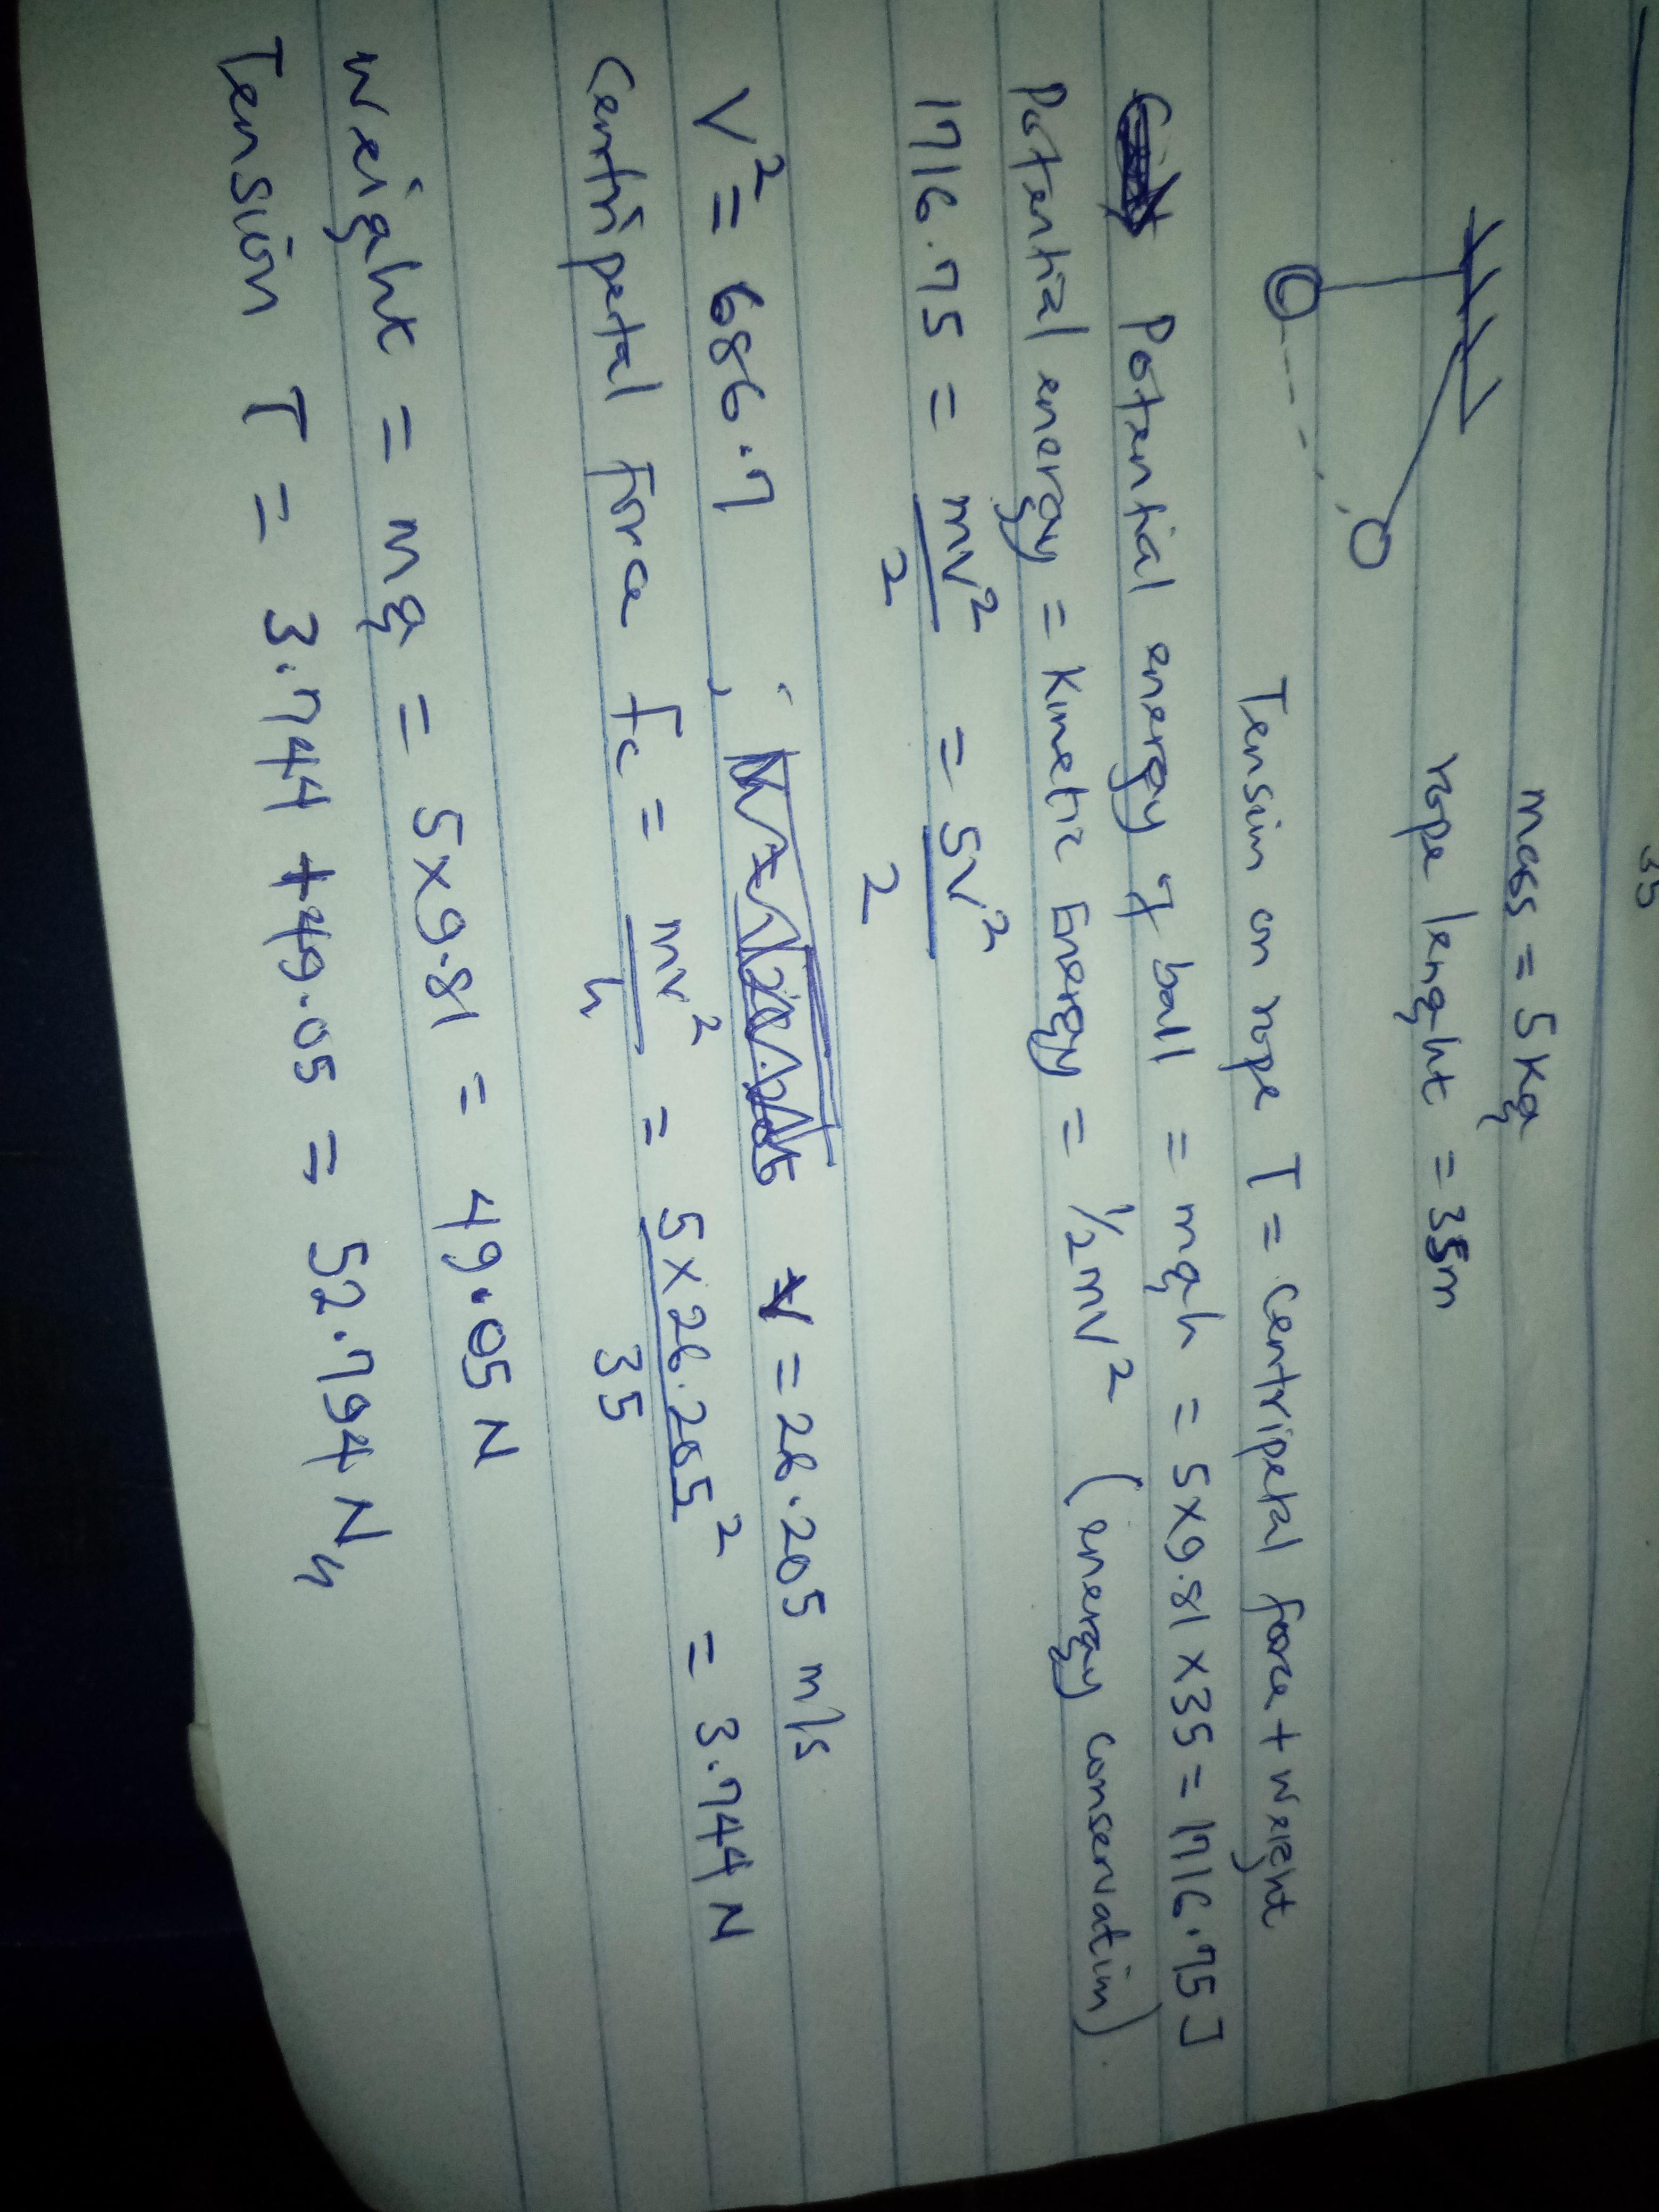 35
mass = 5kg
rope lenght = 35m
Tension on rope T = Centripetal force + weight
Potential energy of ball = mgh = 5x9.81x35 = 1716.75J
Potential energy = Kinetic Energy = 1/2mv² (energy conservation)
1716.75 = mv²/2 = 5v²/2
V² = 686.7 ; V = 26.205 m/s
Centripetal force fc = mv²/h = 5x26.205²/35 = 3.744N
weight = mg = 5x9.81 = 49.05N
Tension T = 3.744 + 49.05 = 52.794N